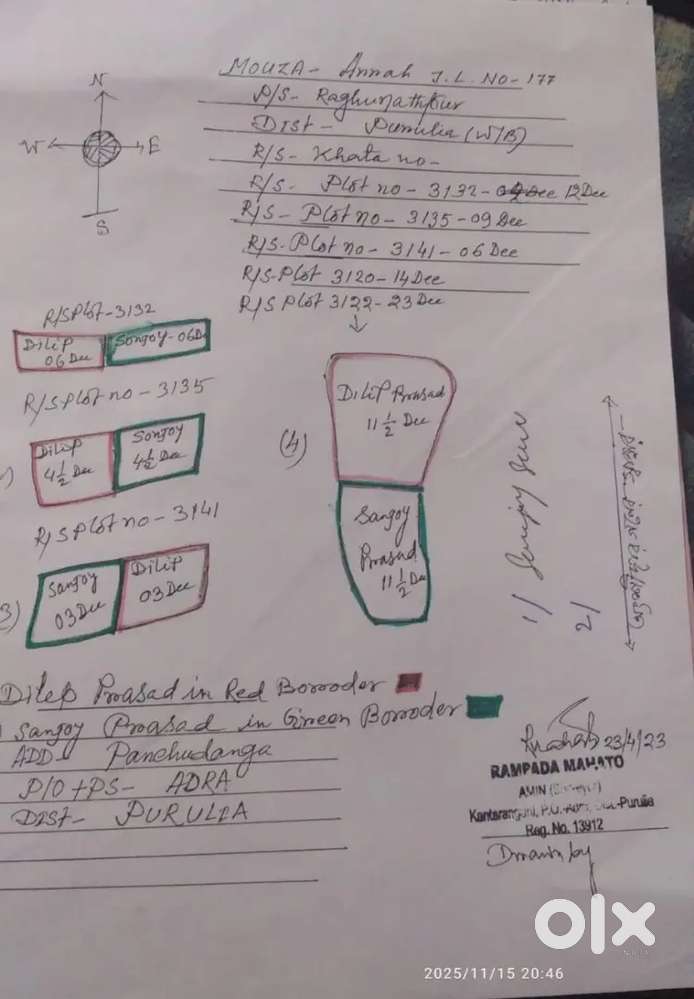 N
W E
S
MOUZA - Annah J.L. NO - 177
P/S - Raghunathpur
DIST - Purulia (W/B)
R/S - Khata no -
R/S - Plot no - 3132 - 12 Dec
R/S - Plot no - 3135 - 09 Dec
R/S - Plot no - 3141 - 06 Dec
R/S - Plot 3120 - 14 Dec
R/S Plot 3122 - 23 Dec
R/S Plot - 3132
Dilip 06 Dec
Sonjoy - 06 De
R/S Plot no - 3135
Dilip 4 1/2 Dec
Sonjoy 4 1/2 Dec
R/S Plot no - 3141
3)
Sanjoy 03 Dec
Dilip 03 Dec
(4)
Dilip Prasad
11 1/2 Dec
Sanjoy
Prasad
11 1/2 Dec
1/ Sanjoy
2/
Dilep Prasad in Red Boroder
Sanjoy Prasad in Green Boroder
ADD - Panchudanga
P/O + PS - ADRA
DIST - PURULIA
23/4/23
RAMPADA MAHATO
AMIN
P.O.- Purulia
Reg. No. 13912
Drawn by
olx
2025/11/15 20:46